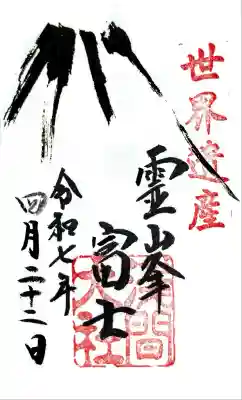 世界遺産
霊峯
富士
令和七年
四月二十二日
浅間
大社